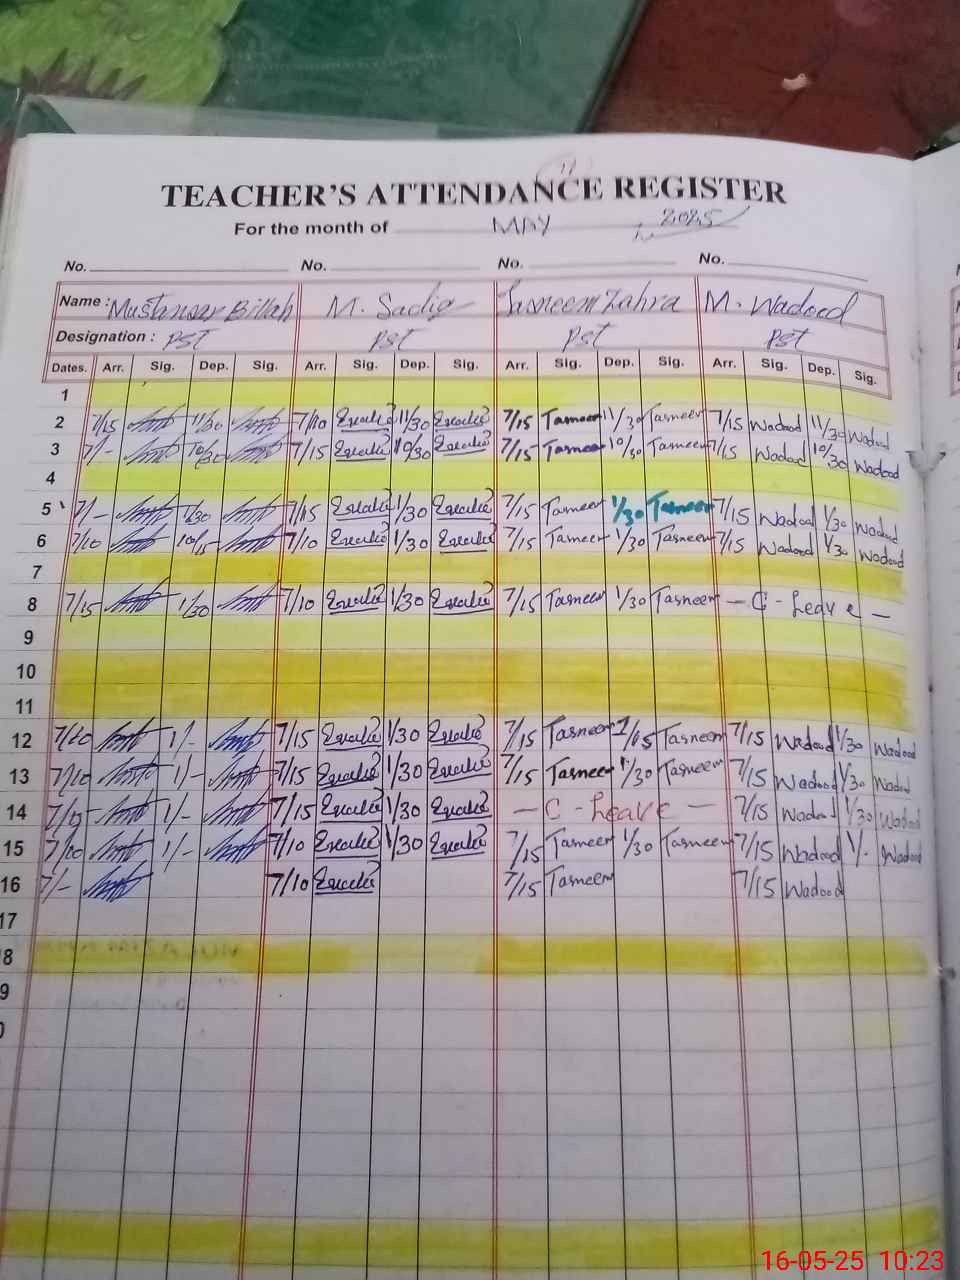 TEACHER'S ATTENDANCE REGISTER
For the month of MAY 2025
No. No. No. No.
Name : Mustansar Billah M. Sadiq Tasneem Zahra M. Wadood
Designation : PST PST PST PST
Dates. Arr. Sig. Dep. Sig. Arr. Sig. Dep. Sig. Arr. Sig. Dep. Sig. Arr. Sig. Dep. Sig.
1
2 7/15 11/30 7/10 11/30 7/15 Tasneem 11/30 Tasneem 7/15 Wadood 11/30 Wadood
3 7/- 10/30 7/15 10/30 7/15 Tasneem 10/30 Tasneem 7/15 Wadood 10/30 Wadood
4
5 7/- 1/30 7/15 1/30 7/15 Tasneem 1/30 Tasneem 7/15 Wadood 1/30 Wadood
6 7/10 10/15 7/10 1/30 7/15 Tasneem 1/30 Tasneem 7/15 Wadood 1/30 Wadood
7
8 7/15 1/30 7/10 1/30 7/15 Tasneem 1/30 Tasneem — C - Leave —
9
10
11
12 7/20 1/- 7/15 1/30 7/15 Tasneem 1/05 Tasneem 7/15 Wadood 1/30 Wadood
13 7/10 1/- 7/15 1/30 7/15 Tasneem 1/30 Tasneem 7/15 Wadood 1/30 Wadood
14 1/- 7/15 1/30 — C - Leave — 7/15 Wadood 1/30 Wadood
15 1/- 7/10 1/30 7/15 Tasneem 1/30 Tasneem 7/15 Wadood 1/- Wadood
16 7/- 7/10 7/15 Tasneem 7/15 Wadood
17
8
9
16-05-25 10:23